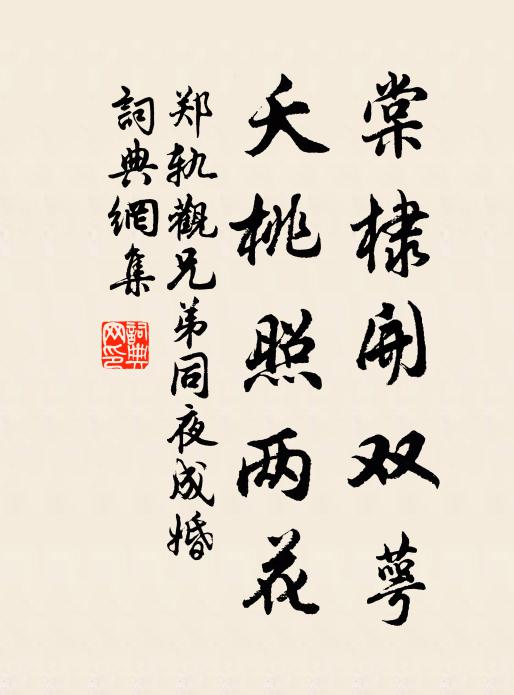 棠棣开双萼
夭桃照两花
郑轨觀兄弟同夜成婚
詞典網集
詞典
网印